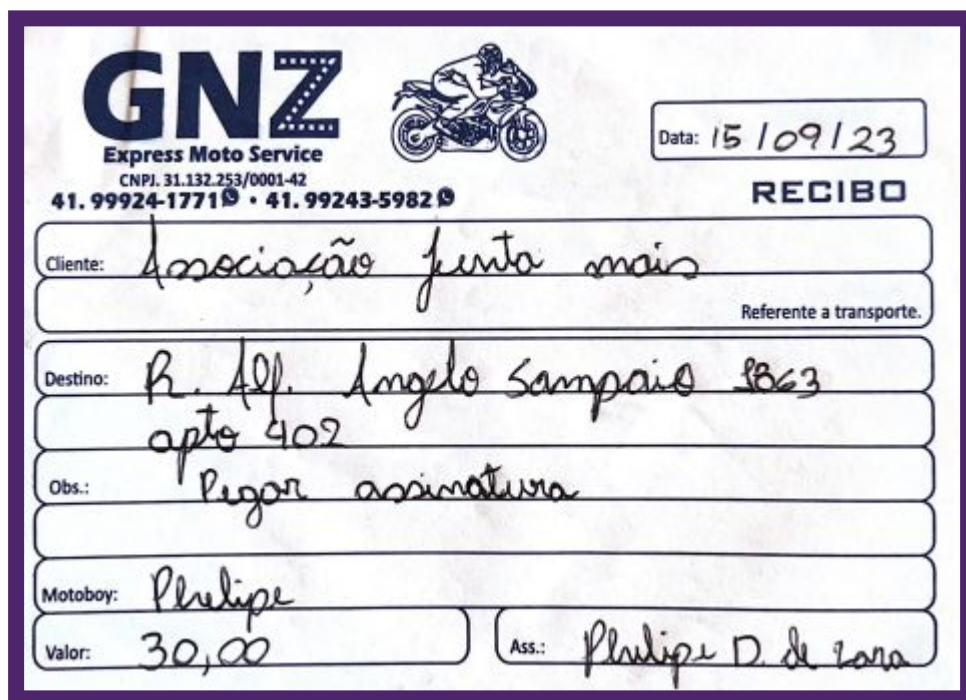 GNZ
Express Moto Service
CNPJ. 31.132.253/0001-42
41. 99924-1771 • 41. 99243-5982
Data: 15/09/23
RECIBO
Cliente: Associação Junta mais
Referente a transporte.
Destino: R. Alf. Angelo Sampaio 1863
apto 402
Obs.: Pegar assinatura
Motoboy: Phelipe
Valor: 30,00
Ass.: Phelipe D. de Lara